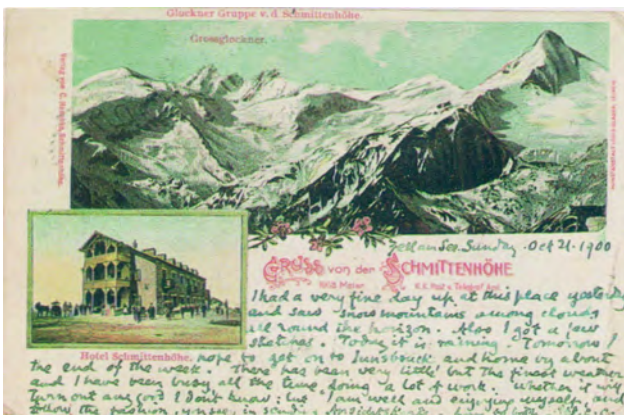 Glockner Gruppe v. d. Schmittenhöhe.
Grossglockner.
Verlag von C.
Zell am See. Sunday. Oct 21. 1900
GRUSS von der SCHMITTENHÖHE.
1968 Meter. K.K. Post u. Telegraf Amt.
I had a very fine day up at this place yesterday
and saw snow mountains among clouds
all round the horizon. Also I got a few
sketches. Today it is raining. Tomorrow I
Hotel Schmittenhöhe.
hope to get on to Innsbruck and home by about
the end of the week. There has been very little but the finest weather
and I have been busy all the time doing a lot of work. Whether it will
turn out any good I don't know; but I am well and enjoying myself, and
follow the fashion, you see, in sending